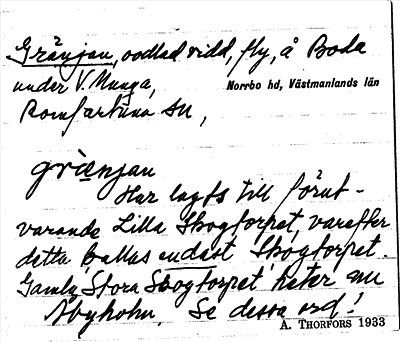 Gränjan, oodlad vidd, fly, å Boda
under V. Munga, Norrbo hd, Västmanlands län
Romfartuna sn,
grä̀njan
Har lagts till förut-
varande Lilla Skogtorpet, varefter
detta kallas endast Skogtorpet.
Gamla Stora Skogtorpet heter nu
Åbyholm. Se dessa ord!
A. THORFORS 1933